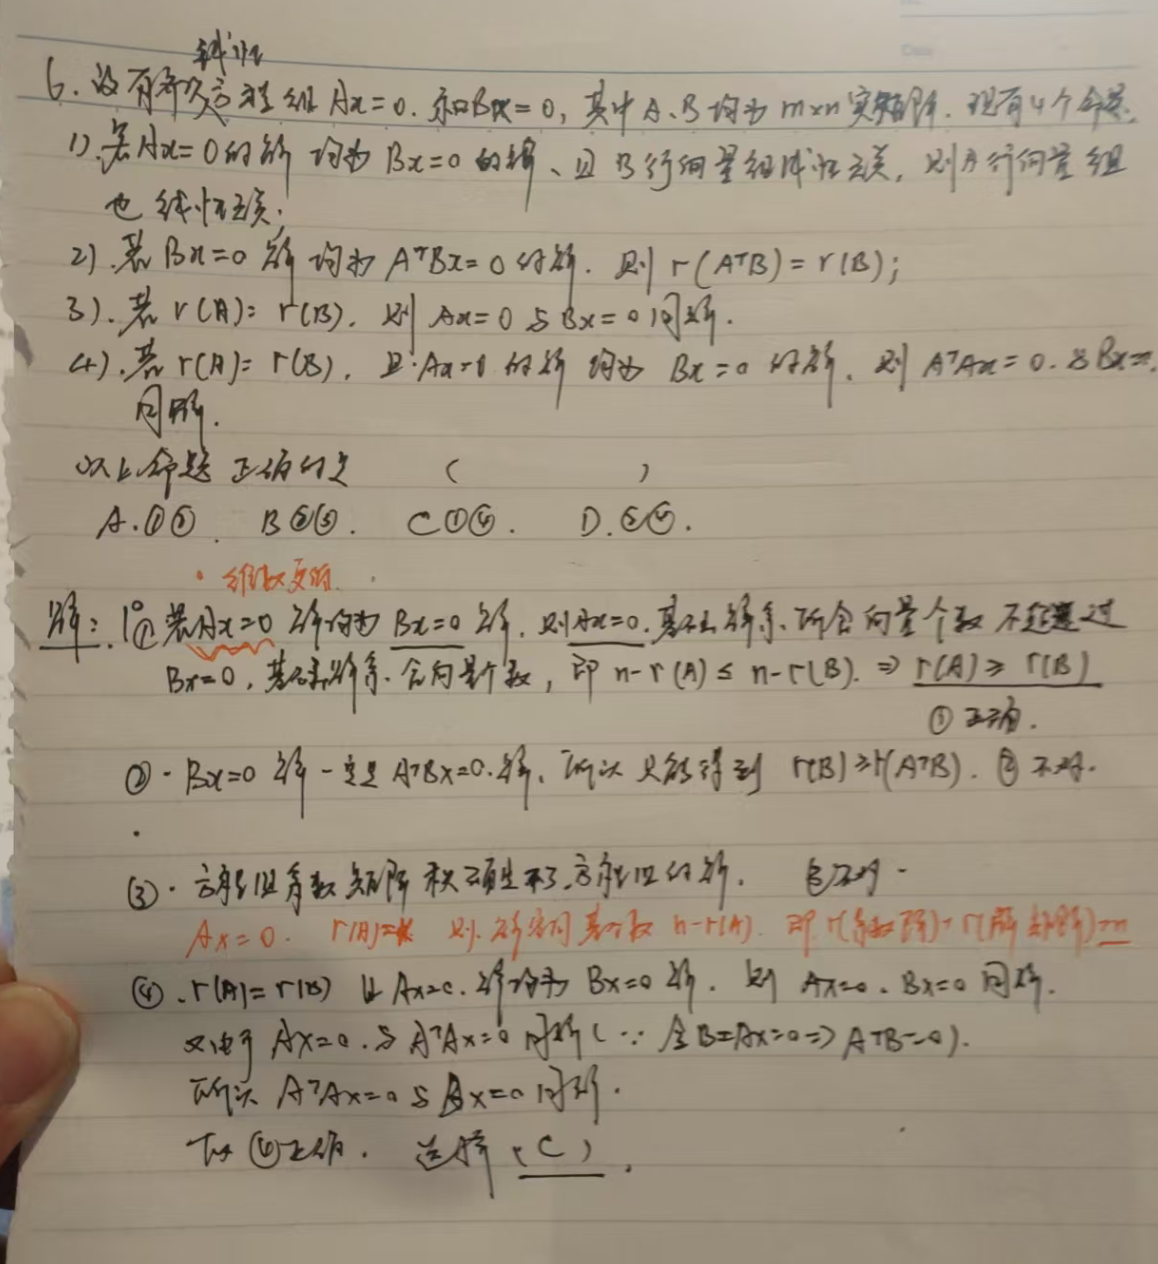 线性
6. 设有齐次方程组 Ax=0. 和Bx=0, 其中 A、B 均为 m×n 实矩阵. 现有4个命题
1). 若Ax=0的解 均为 Bx=0 的解、且 B行向量组线性无关, 则A行向量组
也 线性无关.
2). 若 Bx=0 解 均为 AᵀBx=0 的解. 则 r(AᵀB)=r(B);
3). 若 r(A)=r(B). 则 Ax=0 与 Bx=0同解.
4). 若 r(A)=r(B), 且 Ax=0 的解 均为 Bx=0 的解. 则 AᵀAx=0. 与Bx=0.
同解.
以上命题 正确的是 ( )
A.①② B②③. C①④. D.③④.
解: 1° ① 若Ax=0 解均为 Bx=0 解. 则Ax=0. 基础解系 所含向量个数 不超过
Bx=0, 基础解系 含向量个数, 即 n-r(A)≤n-r(B). ⇒ r(A)≥r(B)
① 正确.
②· Bx=0 解一定是 AᵀBx=0. 解、所以 只能得到 r(B)≥r(AᵀB). ② 不对.
③· 方程组系数矩阵 秩 方程组的解. 不对.
Ax=0. 则 解空间 n-r(A). 即
④. r(A)=r(B) 且 Ax=0. 解均为 Bx=0 解. 则 Ax=0. Bx=0 同解.
又由于 Ax=0. 与 AᵀAx=0 同解 (∵ 令B=Ax=0⇒AᵀB=0).
所以 AᵀAx=0 与 Bx=0 同解.
④正确. 选择 (C).